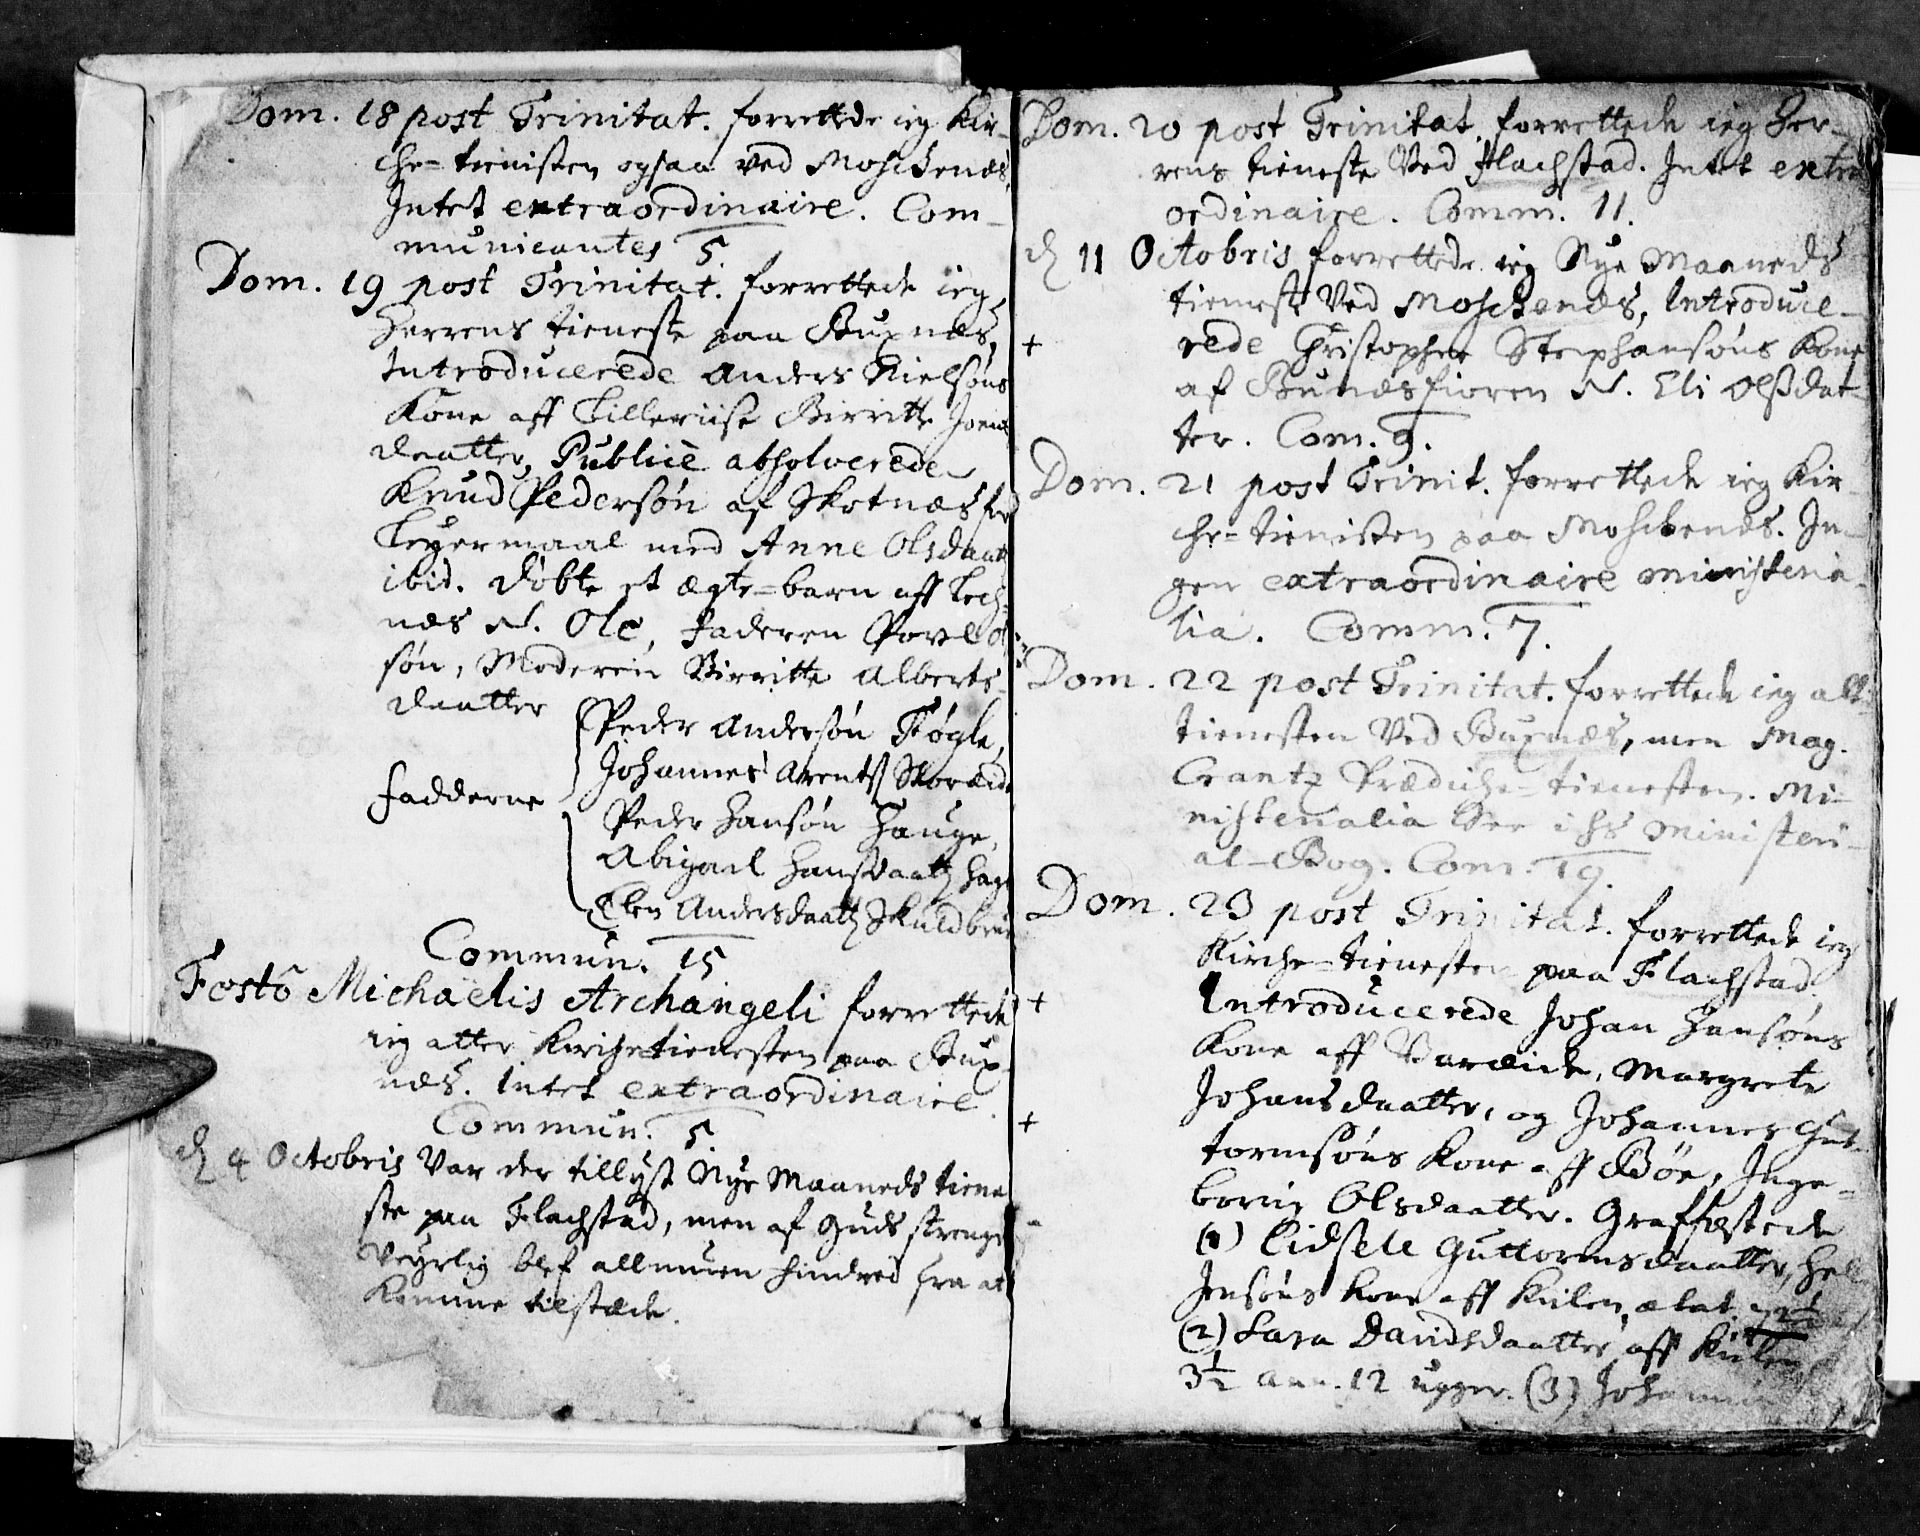 Dom. 18 post Trinitat. forrettede ieg Kir-
che-tienisten ogsaa ved Moschenæs.
Intet extraordinaire. Com-
municantes 5
Dom. 19 post Trinitat. forrettede ieg
Herrens tieneste paa Buxnæs,
Introducerede Anders Nielsøns
Kone aff Lilleriise Birritte Joens
daatter, Publicè absolverede
Knud Pedersøn af Skotnæs for
Leyermaal med Anne Olsdaatr
ibid. døbte et ægte-barn aff Lech-
næs N. Ole, faderen Povel Ol
søn, Moderen Birritte Alberts-
daatter
Peder Andersøn Føgle,
Johannes Arents Skoreid
fadderne
Peder Hansøn Hauge,
Abigael Hansdaatr Hage
Elen Andersdaatr Skuldbrue
Commun. 15
Festô Michaëlis Archangeli forrettede
ieg atter Kirchetienesten paa Bux-
næs. Intet extraordinaire.
Commun. 5
d 4 Octobris Var der tillyst Nye Maaneds tiene
ste paa Flachstad, men af Guds strenge
Veyrlig blef allmuen hindred fra at
komme tilstæde.
Dom. 20 post Trinitat. forrettede ieg Her-
rens tieneste Ved Flachstad. Intet extra
ordinaire. Comm. 11.
d 11 Octobris forrettede ieg Nye Maaneds
tieneste Ved Moschenæs, Introduce-
+ rede Christopher Stephansøns Kone
af Bunæsfioren N. Eli Olsdat-
ter. Com. 9.
Dom. 21 post Trinit. forrettede ieg Kir-
che-tienisten paa Moschenæs. In-
gen extraordinaire ministeria-
lia. Comm. 7.
Dom. 22 post Trinitat. forrettede ieg alt-
tienesten Ved Buxnæs, men Mag.
Crantz Prædiche-tienesten. Mi-
nisterialia See i hs Ministeri-
al-Bog. Com. 19.
Dom. 23 post Trinitat. forrettede ieg
Kirche-tienesten paa Flachstad.
+ Introducerede Johan Hansøns
Kone aff Vareide, Margrete
Johansdaatter, og Johannes Gut-
+ tormsøns Kone aff Bøe, Inge-
borrig Olsdaatter. Graffæstede
(1) Lidsele Guttormsdaatter,
Jensøns Kone aff Kiilen, ætat.
(2) Sara Davidsdaatter aff Kiilen
3½ ann. 12 ugger. (3)